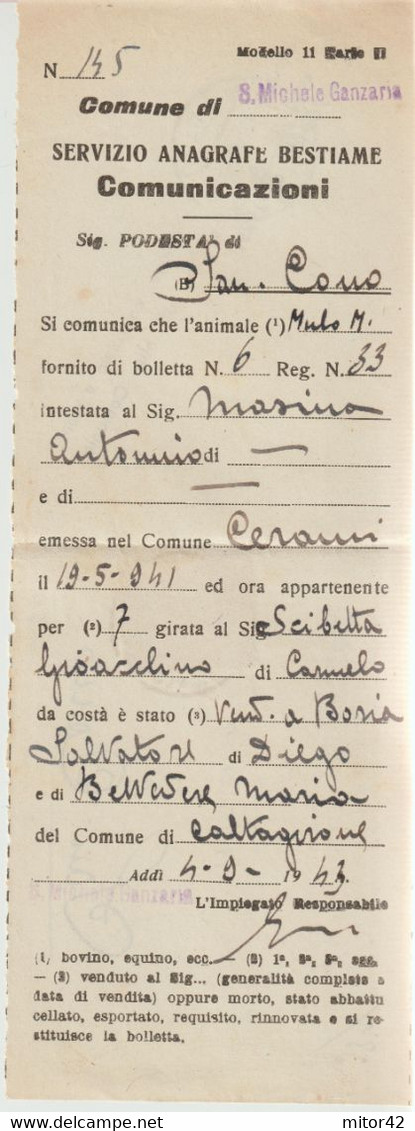 Modello 11 Serie II
N. 145
Comune di S. Michele Ganzaria
SERVIZIO ANAGRAFE BESTIAME
Comunicazioni
Sig. PODESTA' di
(B) San. Cono
Si comunica che l'animale (1) Mulo M.
fornito di bolletta N. 6 Reg. N. 33
intestata al Sig. Masina
Antonnio di —
e di —
emessa nel Comune Cerami
il 19-5-941 ed ora appartenente
per (2) 7 girata al Sig. Scibetta
Gioacchino di Carmelo
da costà è stato (3) Vend. a Boria
Salvatore di Diego
e di Belvedere Maria
del Comune di Caltagirone
Addì 4-9-1943
S. Michele Ganzaria
L'Impiegato Responsabile
(1) bovino, equino, ecc. — (2) 1ª, 2ª, 3ª, sgg.
— (3) venduto al Sig... (generalità complete e
data di vendita) oppure morto, stato abbattu
cellato, esportato, requisito, rinnovata e si re-
stituisce la bolletta.
delcampe.net
mitor42